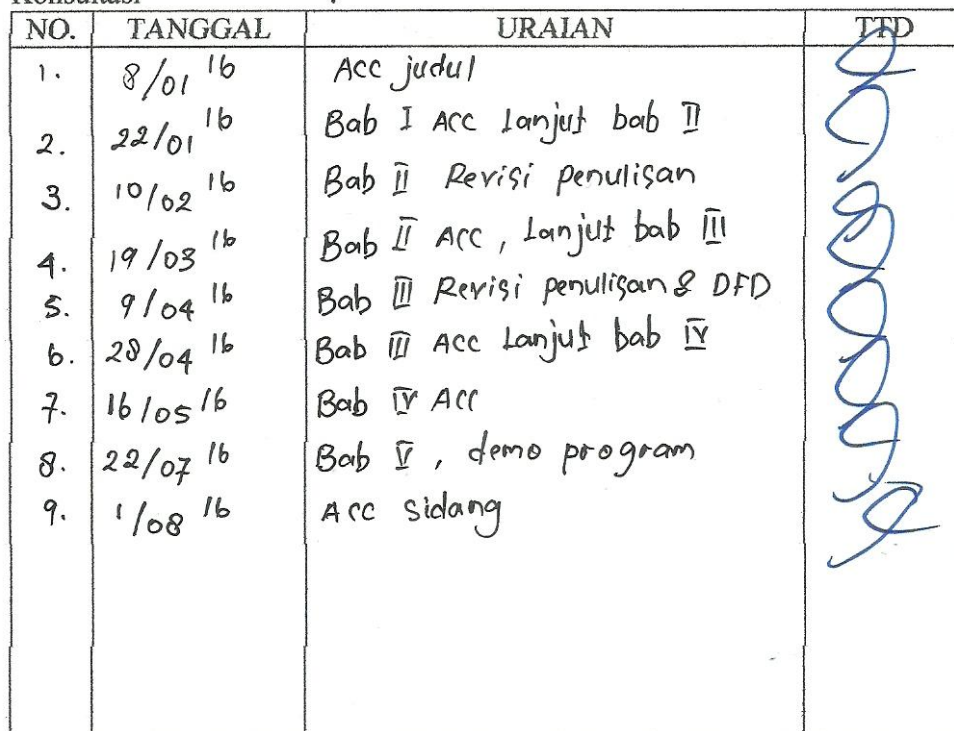 Konsultasi :
NO. TANGGAL URAIAN TTD
1. 8/01 16 Acc judul
2. 22/01 16 Bab I Acc Lanjut bab II
3. 10/02 16 Bab II Revisi penulisan
4. 19/03 16 Bab II Acc, Lanjut bab III
5. 9/04 16 Bab III Revisi penulisan & DFD
6. 28/04 16 Bab III Acc Lanjut bab IV
7. 16/05 16 Bab IV Acc
8. 22/07 16 Bab V, demo program
9. 1/08 16 Acc Sidang